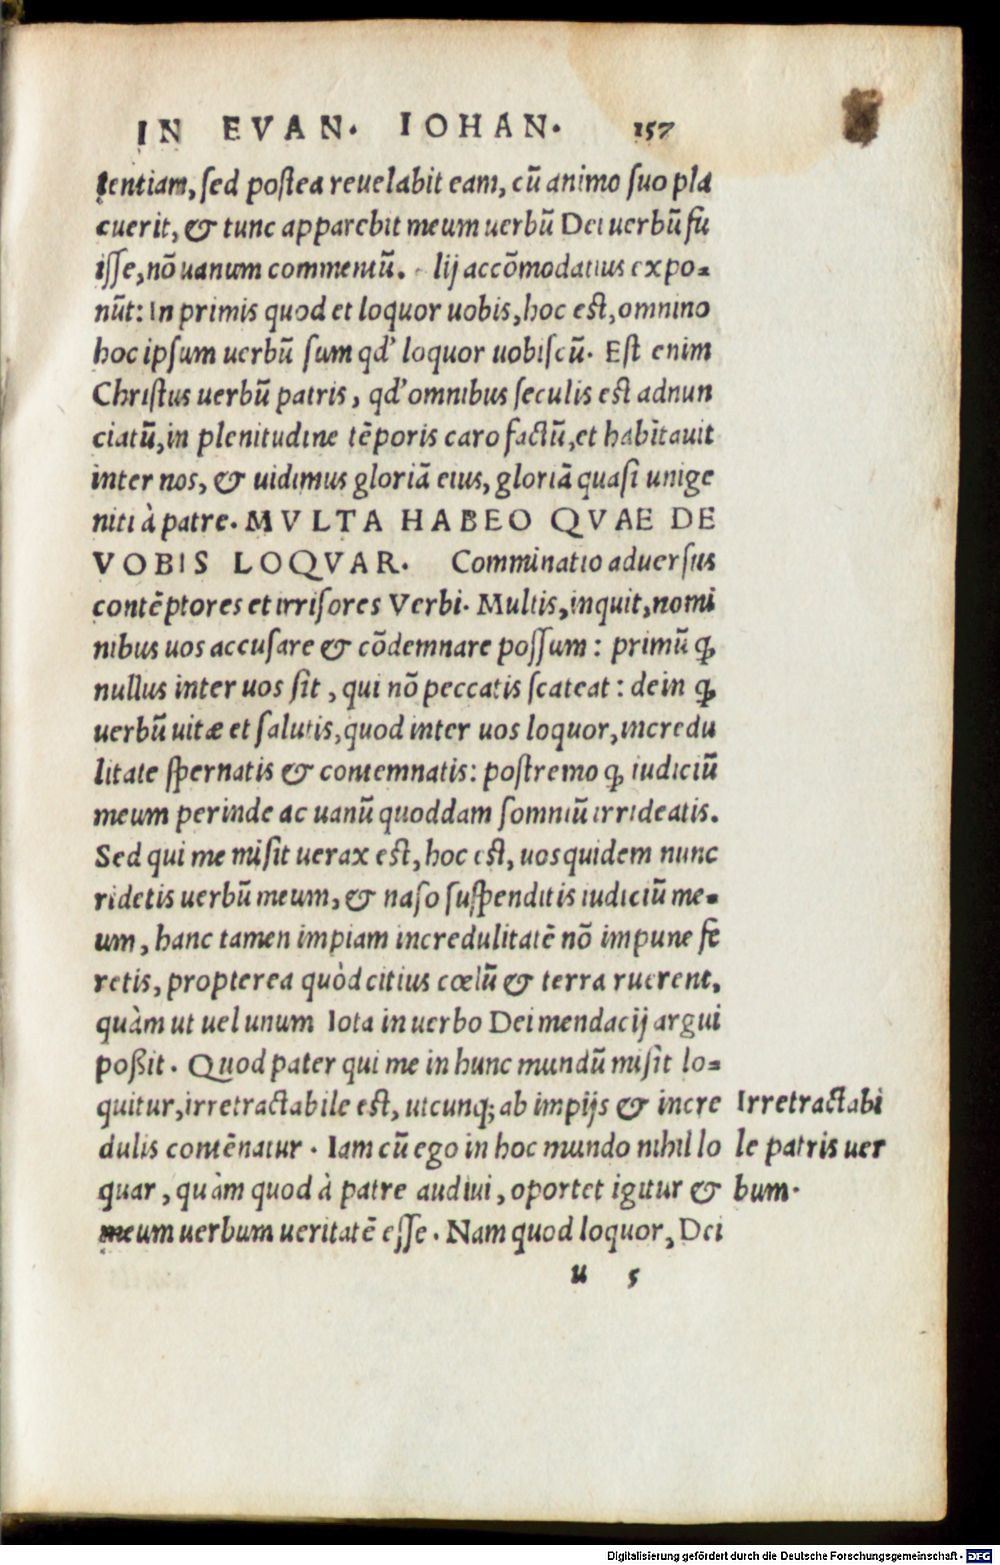 IN EVAN. IOHAN. 157
tentiam, sed postea reuelabit eam, cū animo suo pla
cuerit, & tunc apparebit meum uerbū Dei uerbū fu
isse, nō uanum commentū. Iij accōmodatius expo-
nūt: In primis quod et loquor uobis, hoc est, omnino
hoc ipsum uerbū sum qd' loquor uobiscū. Est enim
Christus uerbū patris, qd' omnibus seculis est adnun
ciatū, in plenitudine tēporis caro factū, et habitauit
inter nos, & uidimus gloriā eius, gloriā quasi unige
niti à patre. MVLTA HABEO QVAE DE
VOBIS LOQVAR. Comminatio aduersus
contēptores et irrisores Verbi. Multis, inquit, nomi
nibus uos accusare & cōdemnare possum: primū ꝙ
nullus inter uos sit, qui nō peccatis scateat: dein ꝙ
uerbū uitæ et salutis, quod inter uos loquor, incredu
litate spernatis & contemnatis: postremo ꝙ iudiciū
meum perinde ac uanū quoddam somniū irrideatis.
Sed qui me misit uerax est, hoc est, uos quidem nunc
ridetis uerbū meum, & naso suspenditis iudiciū me-
um, hanc tamen impiam incredulitatē nō impune fe
retis, propterea quòd citius cœlū & terra ruerent,
quàm ut uel unum Iota in uerbo Dei mendacij argui
poßit. Quod pater qui me in hunc mundū misit lo-
quitur, irretractabile est, utcunq; ab impijs & incre
dulis contēnatur. Iam cū ego in hoc mundo nihil lo
quar, quàm quod à patre audiui, oportet igitur &
meum uerbum ueritatē esse. Nam quod loquor, Dei
Irretractabi
le patris uer
bum.
u 5
Digitalisierung gefördert durch die Deutsche Forschungsgemeinschaft - DFG